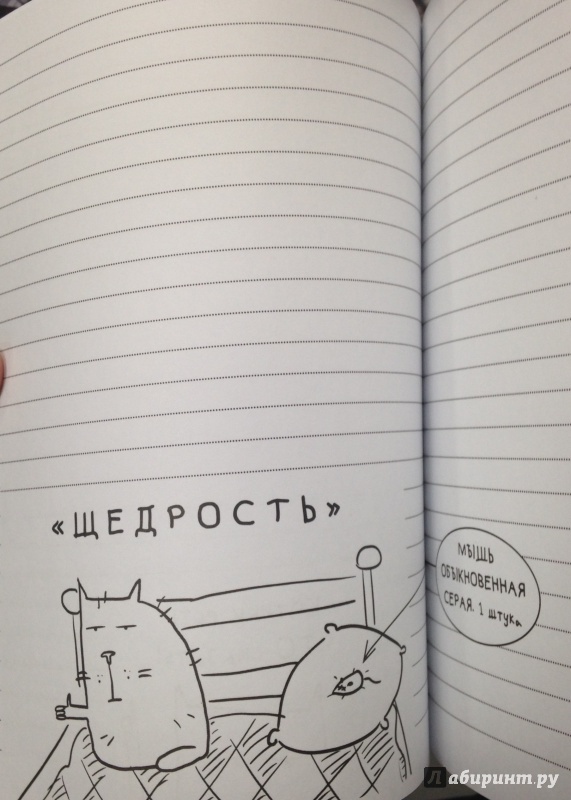 «ЩЕДРОСТЬ»
МЫЩЬ
ОБЫКНОВЕННАЯ
СЕРАЯ. 1 штука
Лабиринт.ру